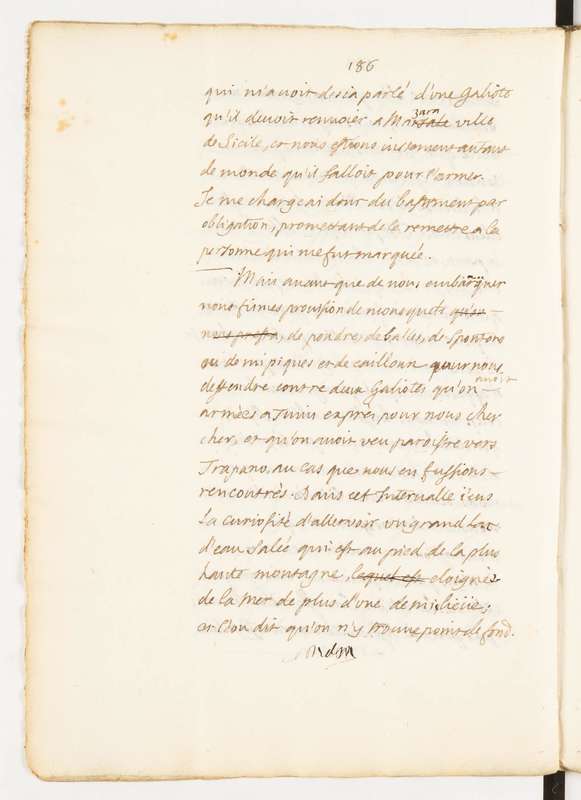 186
qui m'auoit desia parlé d'vne Galiote
qu'il deuoit renuoier a Marsale zara ville
de Sicile, et nous estions iustement autant
de monde qu'il falloit pour l'armer.
Je me chargeai donc du bastiment par
obligation, promettant de le remettre a la
personne qui me fut marquée.
Mais auant que de nous embarquer
nous fismes prouision de mousquets
nous presta, de poudre, de balles, de spontons
ou demi piques et de cailloux pour nous
deffendre contre deux Galiotes qu'on auoit
armées a Tunis exprés pour nous cher
cher, et qu'on auoit veu paroistre vers
Trapano, au cas que nous en fussions
rencontrés. Dans cet Interualle i'eus
la curiosité d'aller voir vn grand Lac
d'eau salée qui est au pied de la plus
haute montagne, lequel est eloignée
de la Mer de plus d'vne demi lieüe;
et l'on dit qu'on n'y trouue point de fond.